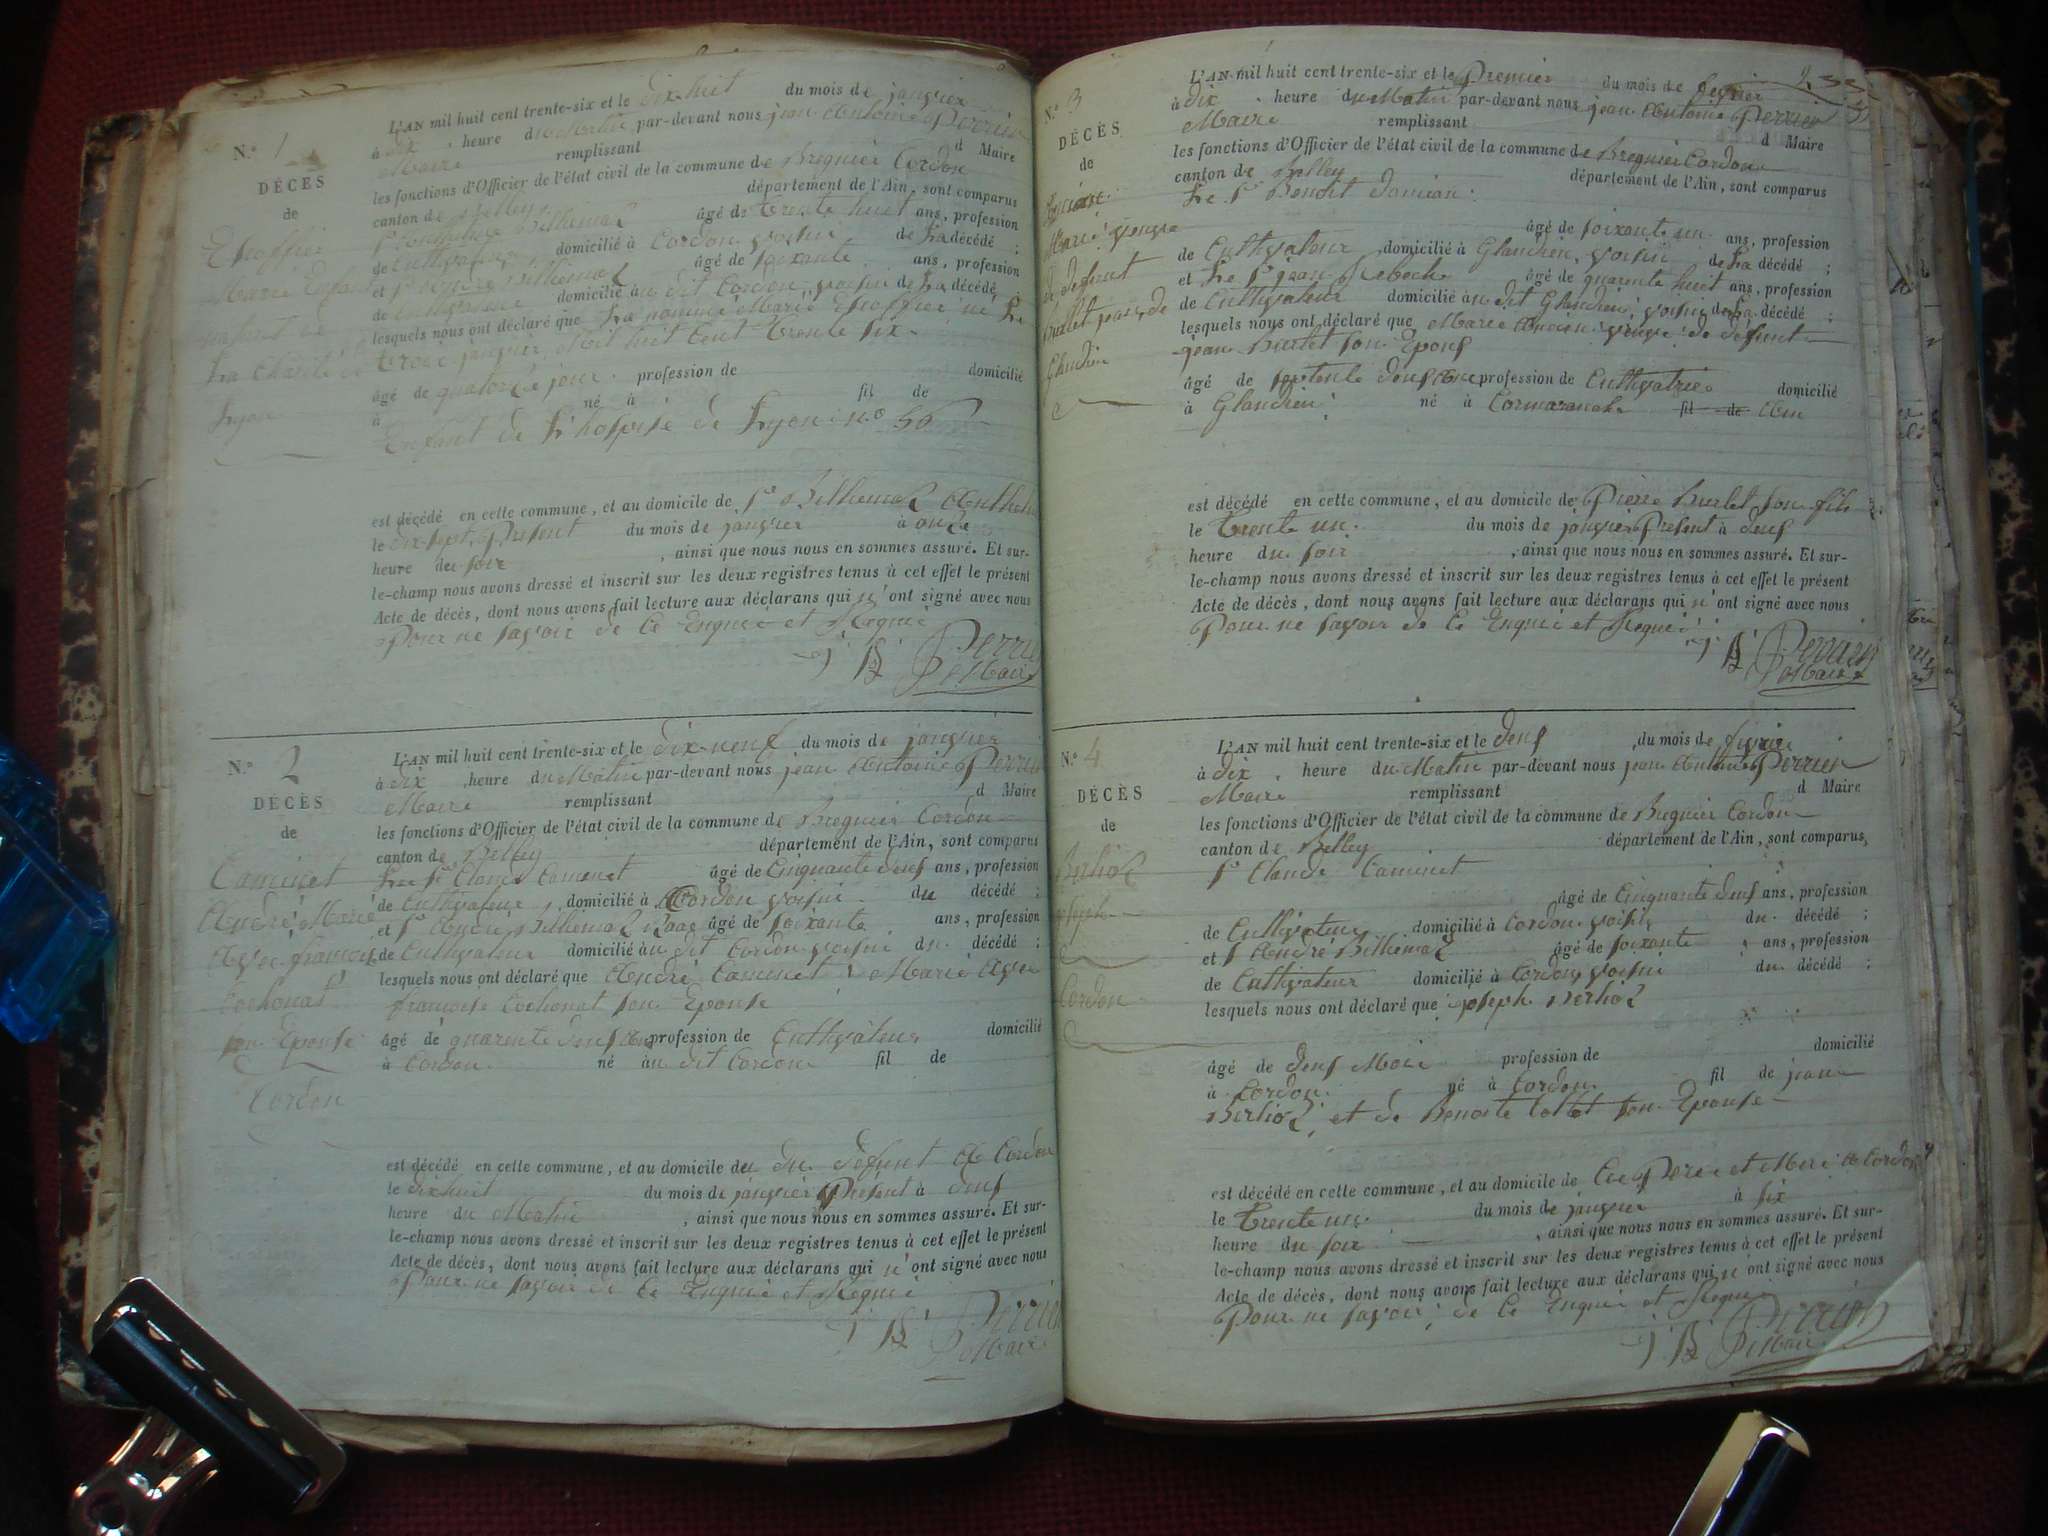 N.° 1
DÉCÈS
de
Espoffier
Marie Enfant
naturel de
La Charité de
Lyon
L'AN mil huit cent trente-six et le dix huit du mois de janvier
à dix heure du Matin par-devant nous jean Antoine Perrier
Maire remplissant d Maire
les fonctions d'Officier de l'état civil de la commune de Bregnier Cordon
canton de Belley département de l'Ain, sont comparus
Sr Anthelme Bithemaz âgé de trente huit ans, profession
de Cultivateur domicilié à Cordon voisin de La décédé ;
et Sr André Bithemaz âgé de soixante ans, profession
de Cultivateur domicilié au dit Cordon voisin de La décédé ;
lesquels nous ont déclaré que La nommé Marie Espoffier né Le
trois janvier Mil huit Cent Trente Six
âgé de quatorze jour profession de domicilié
à né à fil de
Enfant de L'hospise de Lyon no 56
est décédé en cette commune, et au domicile de Sr Bithemaz Anthelm
le dix sept Présent du mois de janvier à onze
heure du soir , ainsi que nous nous en sommes assuré. Et sur-
le-champ nous avons dressé et inscrit sur les deux registres tenus à cet effet le présent
Acte de décès, dont nous avons fait lecture aux déclarans qui n'ont signé avec nous
Pour ne savoir de Ce Enquie et Requie
Perrier
Maire
N.° 2
DÉCÈS
de
Caminet
André Marié
Avec françoise
Cochonat
son Epouse
Cordon
L'AN mil huit cent trente-six et le dix neuf du mois de janvier
à dix heure du Matin par-devant nous jean Antoine Perrier
Maire remplissant d Maire
les fonctions d'Officier de l'état civil de la commune de Bregnier Cordon
canton de Belley département de l'Ain, sont comparus
Le Sr Claude Caminet âgé de Cinquante deuf ans, profession
de Cultivateur, domicilié à Cordon voisin du décédé ;
et Sr André Bithemaz âgé de soixante ans, profession
de Cultivateur domicilié au dit Cordon voisin du décédé ;
lesquels nous ont déclaré que André Caminet Marié Avec
françoise Cochonat son Epouse
âgé de quarente deuf Ans profession de Cultivateur domicilié
à Cordon né au dit Cordon fil de
est décédé en cette commune, et au domicile du du defunt A Cordon
le dix huit du mois de janvier Présent à deuf
heure du Matin , ainsi que nous nous en sommes assuré. Et sur-
le-champ nous avons dressé et inscrit sur les deux registres tenus à cet effet le présent
Acte de décès, dont nous avons fait lecture aux déclarans qui n'ont signé avec nous
Pour ne savoir de Ce Enquie et Requie
Perrier
Maire
N.° 3
DÉCÈS
de
Marie veuve
de defunt
Burlet jean de
Glandieu
L'AN mil huit cent trente-six et le Premier du mois de fevrier
à dix heure du Matin par-devant nous jean Antoine Perrier
Maire remplissant d Maire
les fonctions d'Officier de l'état civil de la commune de Bregnier Cordon
canton de Belley département de l'Ain, sont comparus
Le Sr Benoit Domian
âgé de soixante un ans, profession
de Cultivateur, domicilié à Glandieu voisin de La décédé ;
et Le Sr jean Reboch âgé de quarente huit ans, profession
de Cultivateur domicilié au dit Glandieu, voisin de La décédé ;
lesquels nous ont déclaré que Marie Ancien veuve de defunt
jean Burlet son Epouf
âgé de septente deuf Ans profession de Cultivatrice domicilié
à Glandieu né à Cormaranche fil de Ain
est décédé en cette commune, et au domicile de Pierre Burlet son fils
le trente un du mois de janvier Présent à deuf
heure du soir , ainsi que nous nous en sommes assuré. Et sur-
le-champ nous avons dressé et inscrit sur les deux registres tenus à cet effet le présent
Acte de décès, dont nous avons fait lecture aux déclarans qui n'ont signé avec nous
Pour ne savoir de Ce Enquie et Requie
Perrier
Maire
N.° 4
DÉCÈS
de
Berlioz
joseph
Cordon
L'AN mil huit cent trente-six et le deuf du mois de fevrier
à dix heure du Matin par-devant nous jean Antoine Perrier
Maire remplissant d Maire
les fonctions d'Officier de l'état civil de la commune de Bregnier Cordon
canton de Belley département de l'Ain, sont comparus,
Sr Claude Caminet
âgé de Cinquante deuf ans, profession
de Cultivateur domicilié à Cordon voisin du décédé ;
et Sr André Bithemaz âgé de soixante ans, profession
de Cultivateur domicilié à Cordon voisin du décédé ;
lesquels nous ont déclaré que joseph Berlioz
âgé de deuf Moi profession de domicilié
à Cordon né à Cordon fil de jean
Berlioz, et de Benoite Collet son Epouse
est décédé en cette commune, et au domicile de Ce Pere et Mere A Cordon
le trente un du mois de janvier à six
heure du soir , ainsi que nous nous en sommes assuré. Et sur-
le-champ nous avons dressé et inscrit sur les deux registres tenus à cet effet le présent
Acte de décès, dont nous avons fait lecture aux déclarans qui n ont signé avec nous
Pour ne savoir, de Ce Enquie et Requie
Perrier
Maire